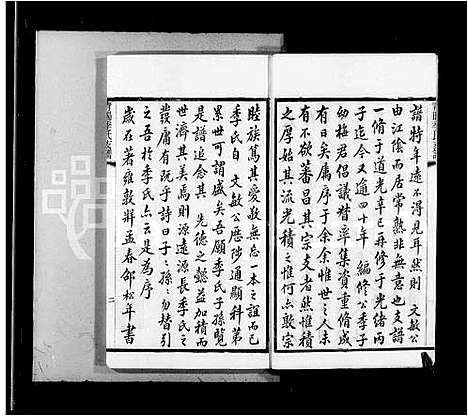 譜特年遠不得見耳然則　文敏公
由江陰而居常熟非無意也支譜
一脩于道光辛巳再修于光緒丙
子迄今又逾四十年　編修公季子
幼梅君倡議督率集資重脩成
有日矣屬序于余余惟世之人未
有不欲蕃昌其宗支者然惟積
之厚始其流光積之惟何亦敦宗
睦族篤其愛敬無忘一本之誼而已
季氏自　文敏公歷陟通顯科第
累世可謂盛矣吾願季氏子孫覽
是譜追念其　先德之懿益加積而
世濟其美焉則源遠源長季氏之
發庸有既乎詩曰子子孫孫勿替引
之吾於季氏亦云是為序
歲在著雍敦牂孟春邵松年書
二